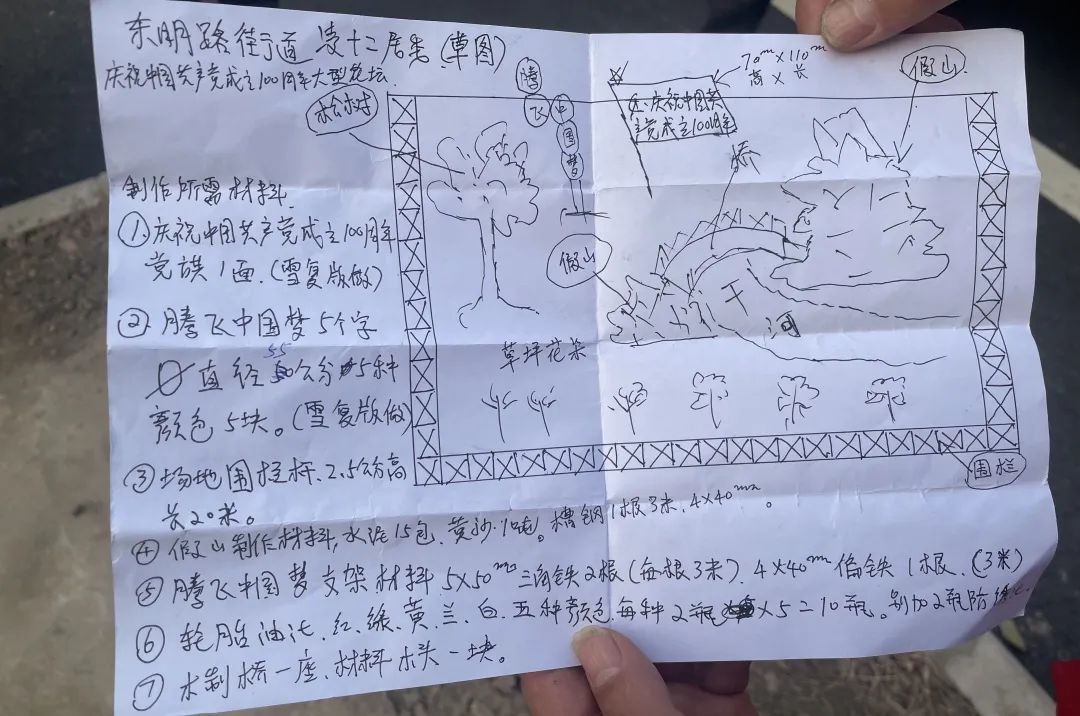 东明路街道凌十二居委(草图)
庆祝中国共产党成立100周年大型花坛
松树
腾
飞
中
国
梦
庆祝中国共
产党成立100周年
70m×110m
高×长
假山
桥
假山
干河
草坪花朵
围栏
制作所需材料
①庆祝中国共产党成立100周年
党旗1面.(雪复版做)
②腾飞中国梦5个字
直径55公分5种
颜色5块。(雪复版做)
③场地围栏杆、2.5公分高
长20米。
④假山制作材料,水泥15包、黄沙1吨。槽钢1根3米,4×40
⑤腾飞中国梦支架材料5×50三角铁2根(每根3米)、4×40扁铁1根、(3米)
⑥轮胎油漆、红、绿、黄、兰、白、五种颜色每种2瓶×5=10瓶。另加2瓶防锈
⑦木制桥一座、材料木头一块。